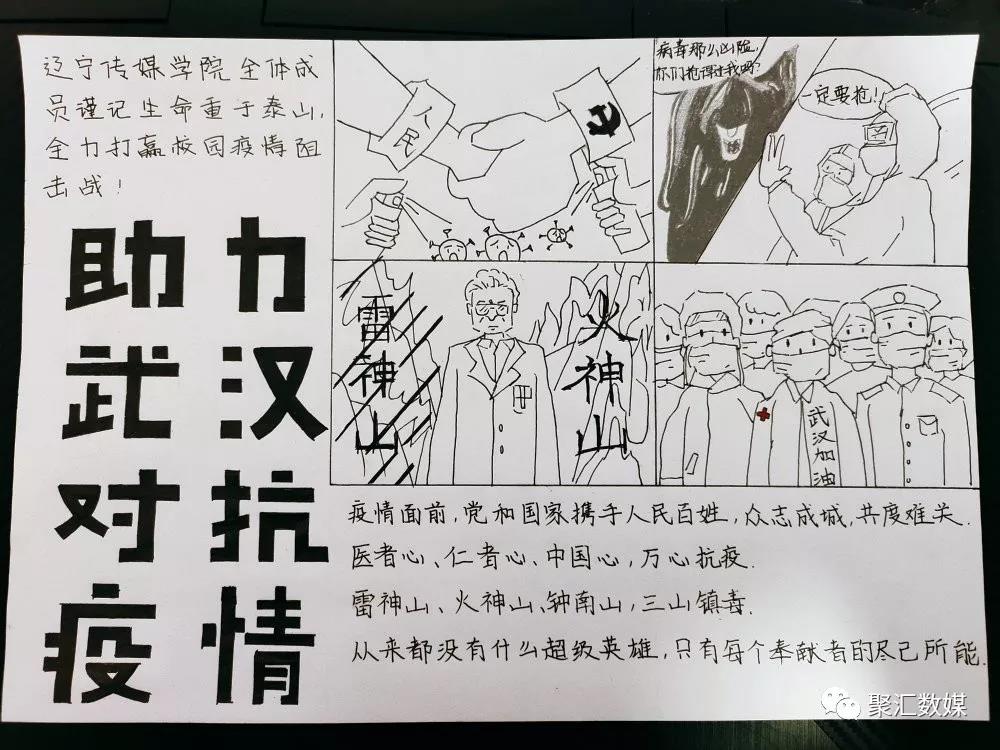 辽宁传媒学院全体成
员谨记生命重于泰山,
全力打赢校园疫情阻
击战!
助力
武汉
对抗
疫情
人民
病毒那么凶险,
你们抢得过我吗?
一定要抢!
雷神山
火神山
武汉加油
疫情面前,党和国家携手人民百姓,众志成城,共度难关.
医者心、仁者心、中国心,万心抗疫.
雷神山、火神山、钟南山,三山镇毒.
从来都没有什么超级英雄,只有每个奉献者的尽己所能.
聚汇数媒